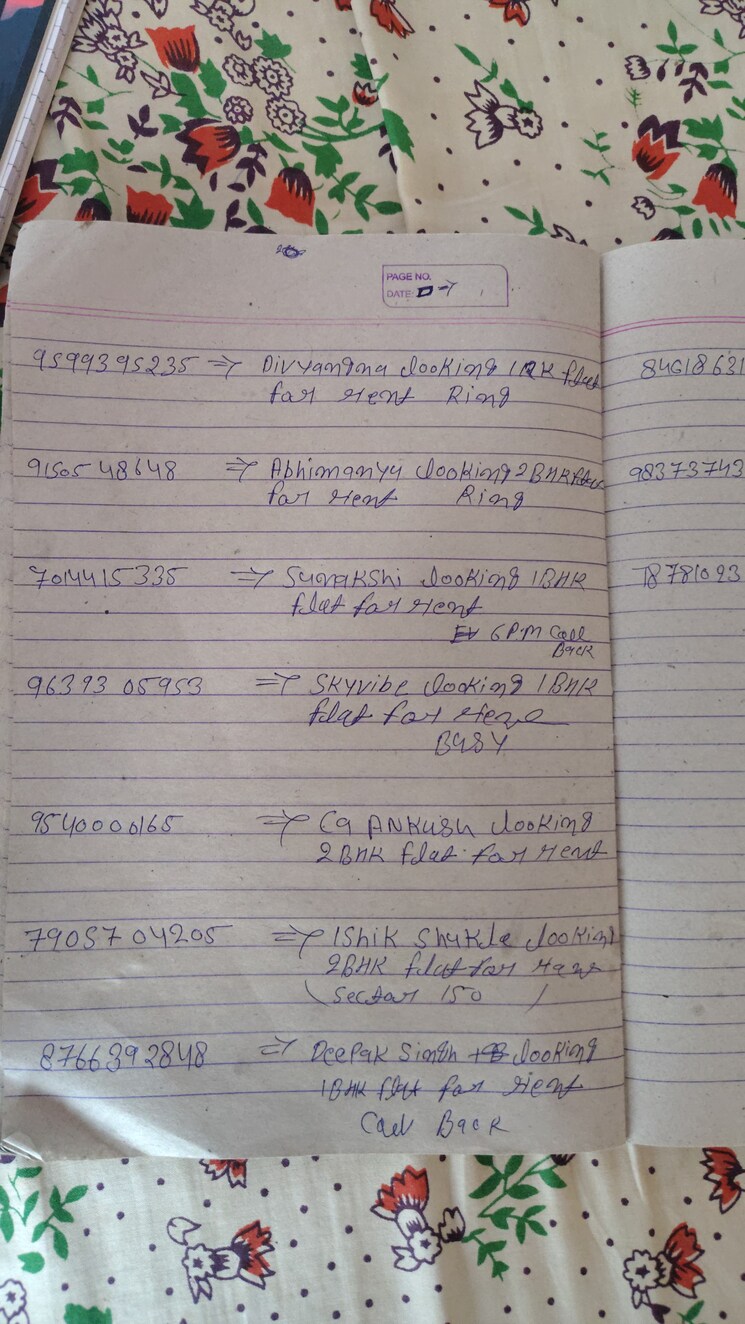 PAGE NO.
DATE:
9599395235 ⇒ Divyangna looking 1RK flat
for rent Ring
9150548648 ⇒ Abhimanyu looking 2BHK flat
for rent Ring
7014415335 ⇒ Sunakshi looking 1BHK
flat for rent
6 P.M Call
Back
96393 05953 ⇒ Skyvibe looking 1BHK
flat for
Busy
9540000165 ⇒ Ca ANKUSH looking
2BHK flat for rent
79057 04205 ⇒ IShik Shukla looking
2BHK flat for
(Sector 150)
8766392848 ⇒ Deepak Singh looking
1BHK flat for rent
Call Back
84618631
98373743
78781093